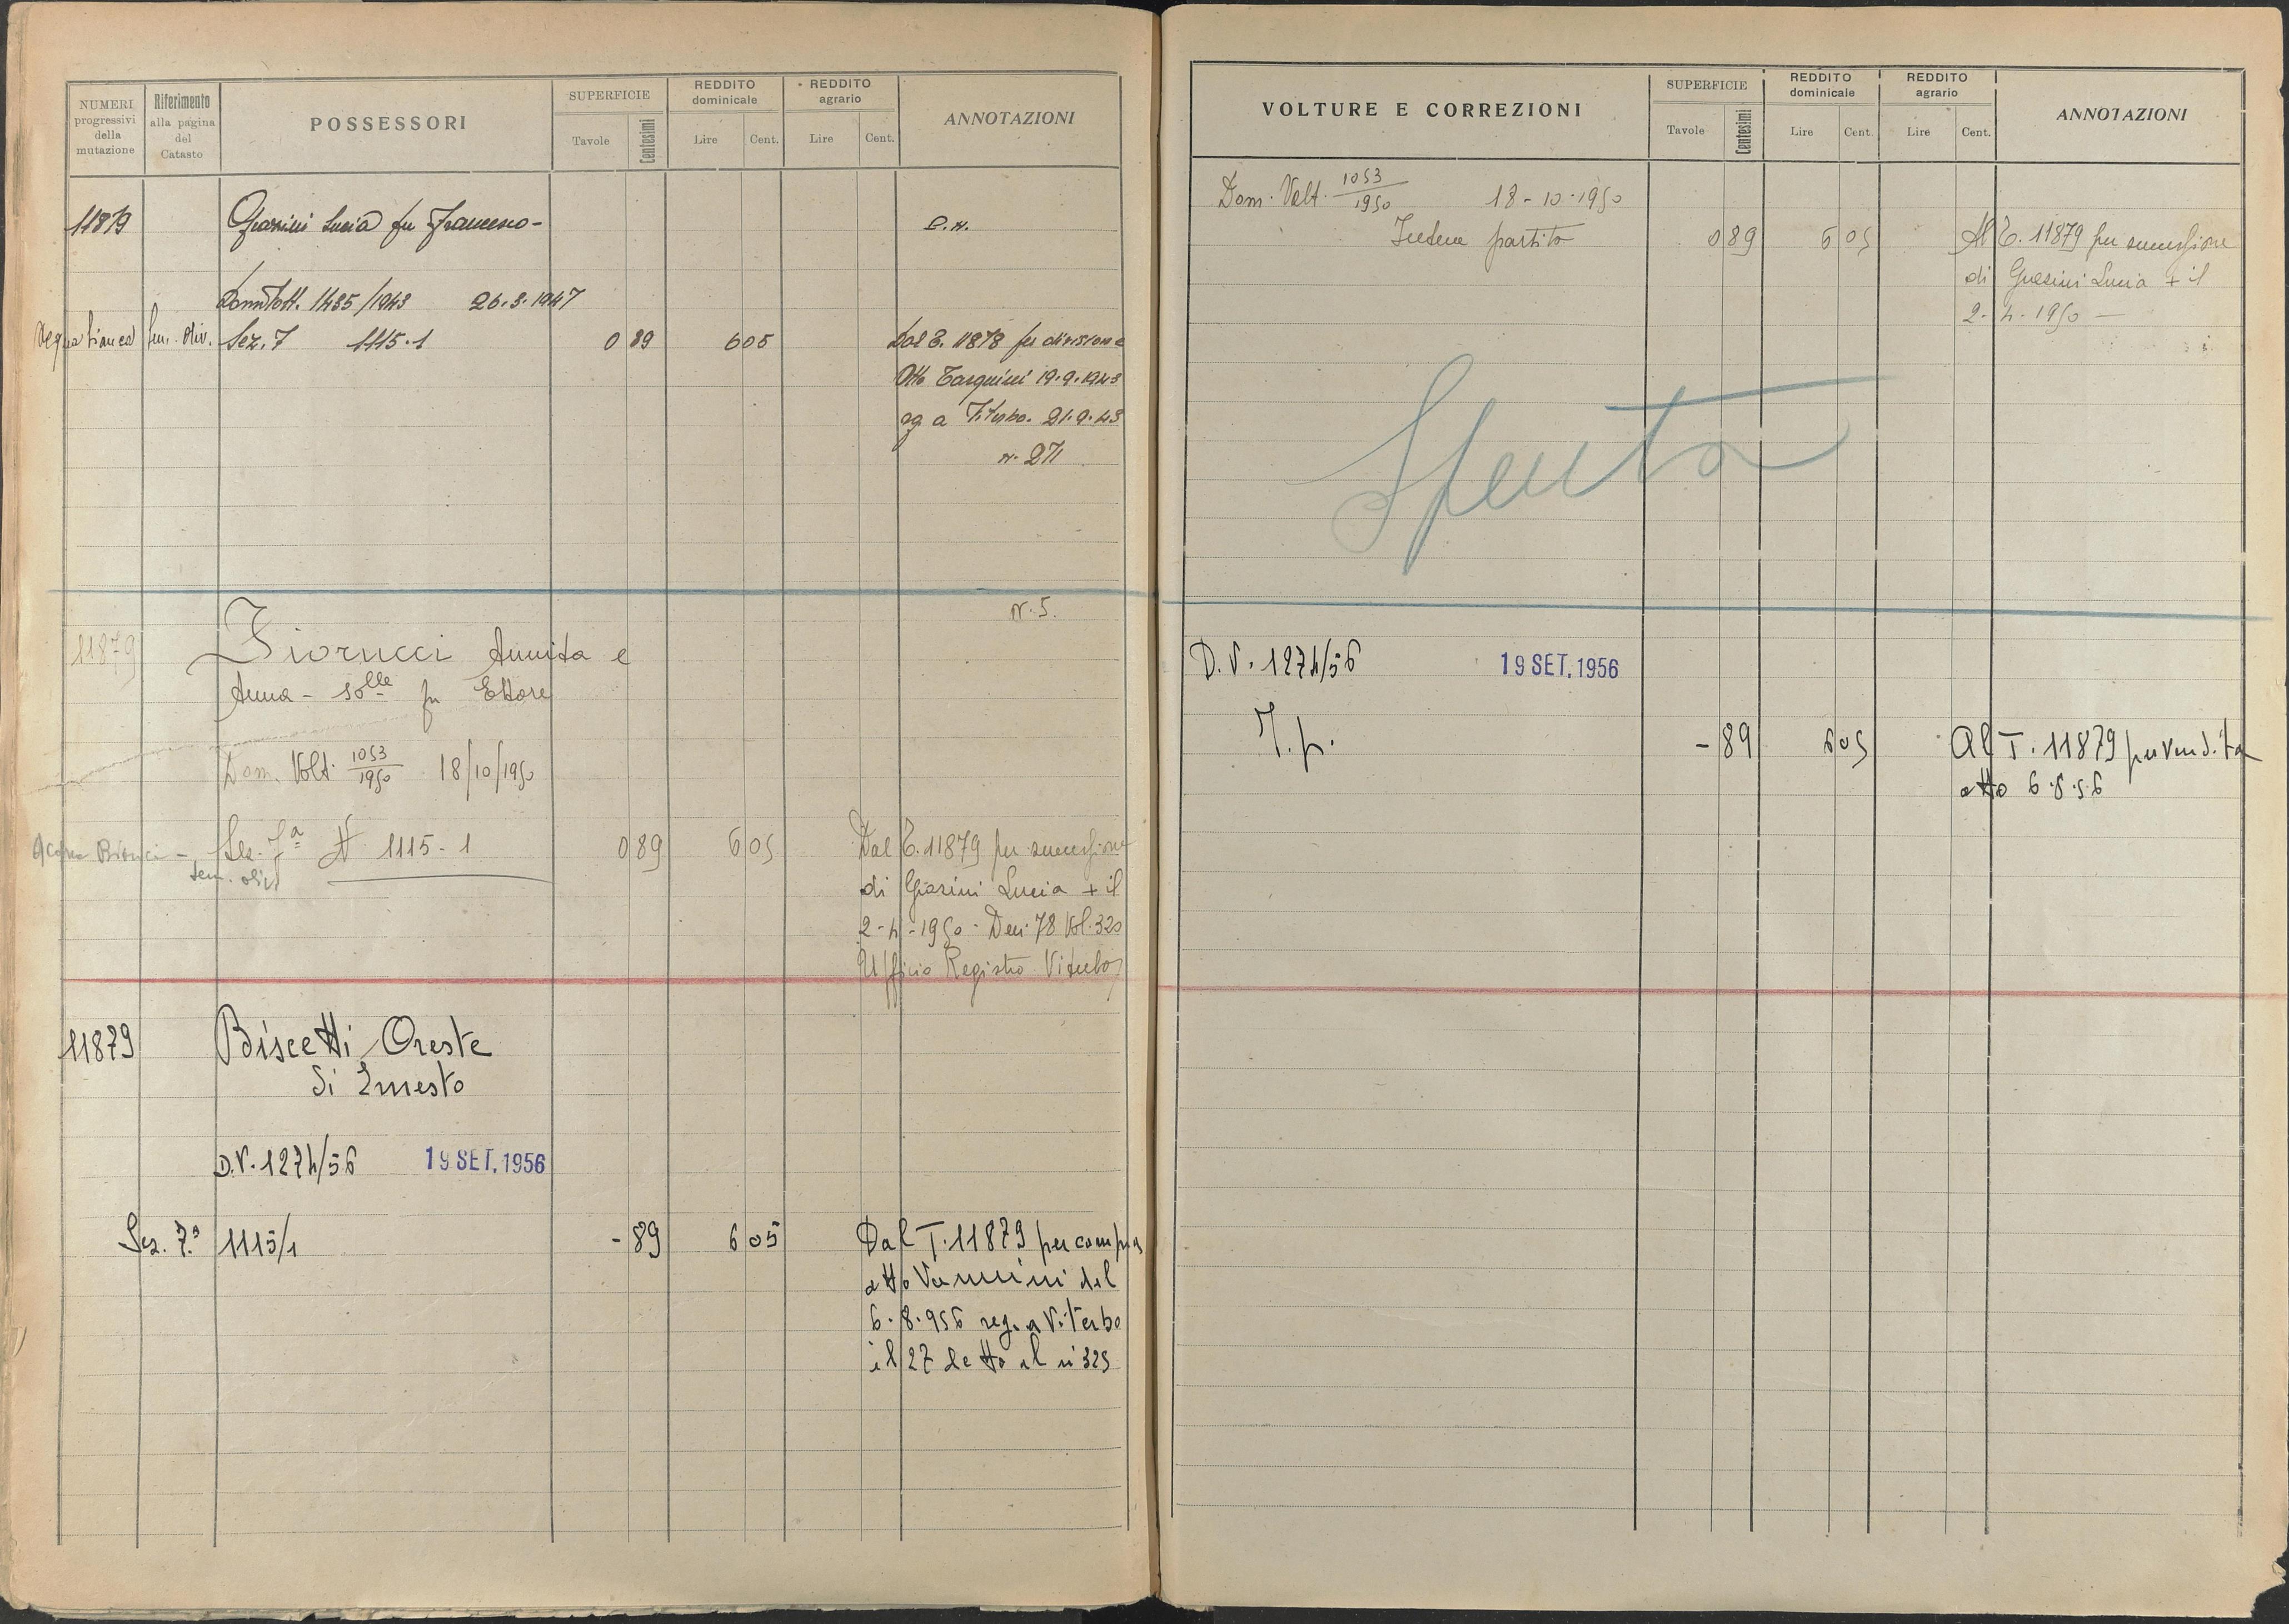 NUMERI progressivi della mutazione
Riferimento alla pagina del Catasto
POSSESSORI
SUPERFICIE
Tavole
Centesimi
REDDITO dominicale
Lire
Cent.
REDDITO agrario
Lire
Cent.
ANNOTAZIONI
11879 Grasini Lucia fu Francesco -
1435/1943 26.3.1947
Sez. 7 1115.1 0 89 6 05 Dal T. 11878 per divisione
Atto Tarquini 19.9.1943
reg. a Viterbo. 21.9.43
n. 271
N. 5.
11879 Fiorucci Annita e
Anna - solle fu Ettore
Dom. Volt. 1053/1950 18/10/1950
Acqua Bianca - Sez. 7a N 1115 - 1 0 89 6 05 Dal T. 11879 per successione
sem. oliv
di Grasini Lucia + il
2-4-1950 - Den. 78 Vol. 320
Ufficio Registro Viterbo
11879 Biscetti Oreste
di Ernesto
D.V. 1274/56 19 SET. 1956
Sez. 7.a 1115/1 - 89 6 05 Dal T. 11879 per compra
atto Vannini del
6.8.956 reg. a Viterbo
il 27 detto al n 325
VOLTURE E CORREZIONI
SUPERFICIE
Tavole
Centesimi
REDDITO dominicale
Lire
Cent.
REDDITO agrario
Lire
Cent.
ANNOTAZIONI
Dom. Volt. 1053/1950 18-10-1950
Intera partita 0 89 6 05 Al T. 11879 per successione
di Grasini Lucia + il
2-4-1950 —
Spenta
D.V. 1274/56 19 SET. 1956
I. p. - 89 6 05 Al T. 11879 per vendita
atto 6.8.56